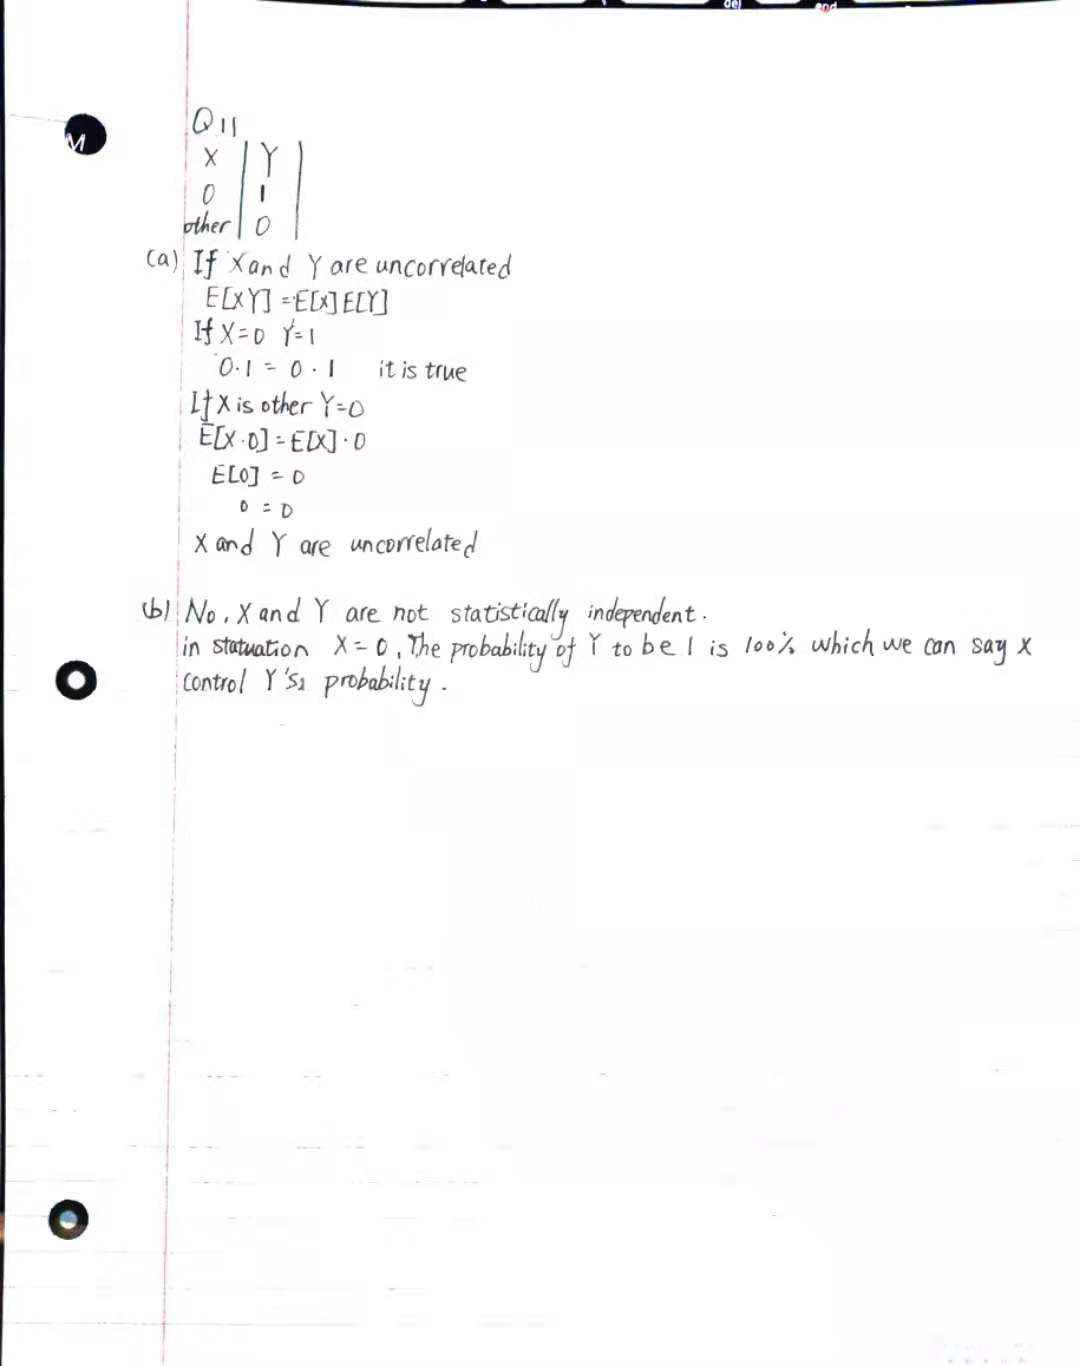 del and
M
Q11
X | Y |
0 | 1
other | 0
(a) If X and Y are uncorrelated
E[XY] = E[X] E[Y]
If X=0 Y=1
0·1 = 0·1 it is true
If X is other Y=0
E[X·0] = E[X]·0
E[0] = 0
0 = 0
X and Y are uncorrelated
(b) No, X and Y are not statistically independent.
in statuation X=0, The probability of Y to be 1 is 100% which we can say X
control Y's probability.